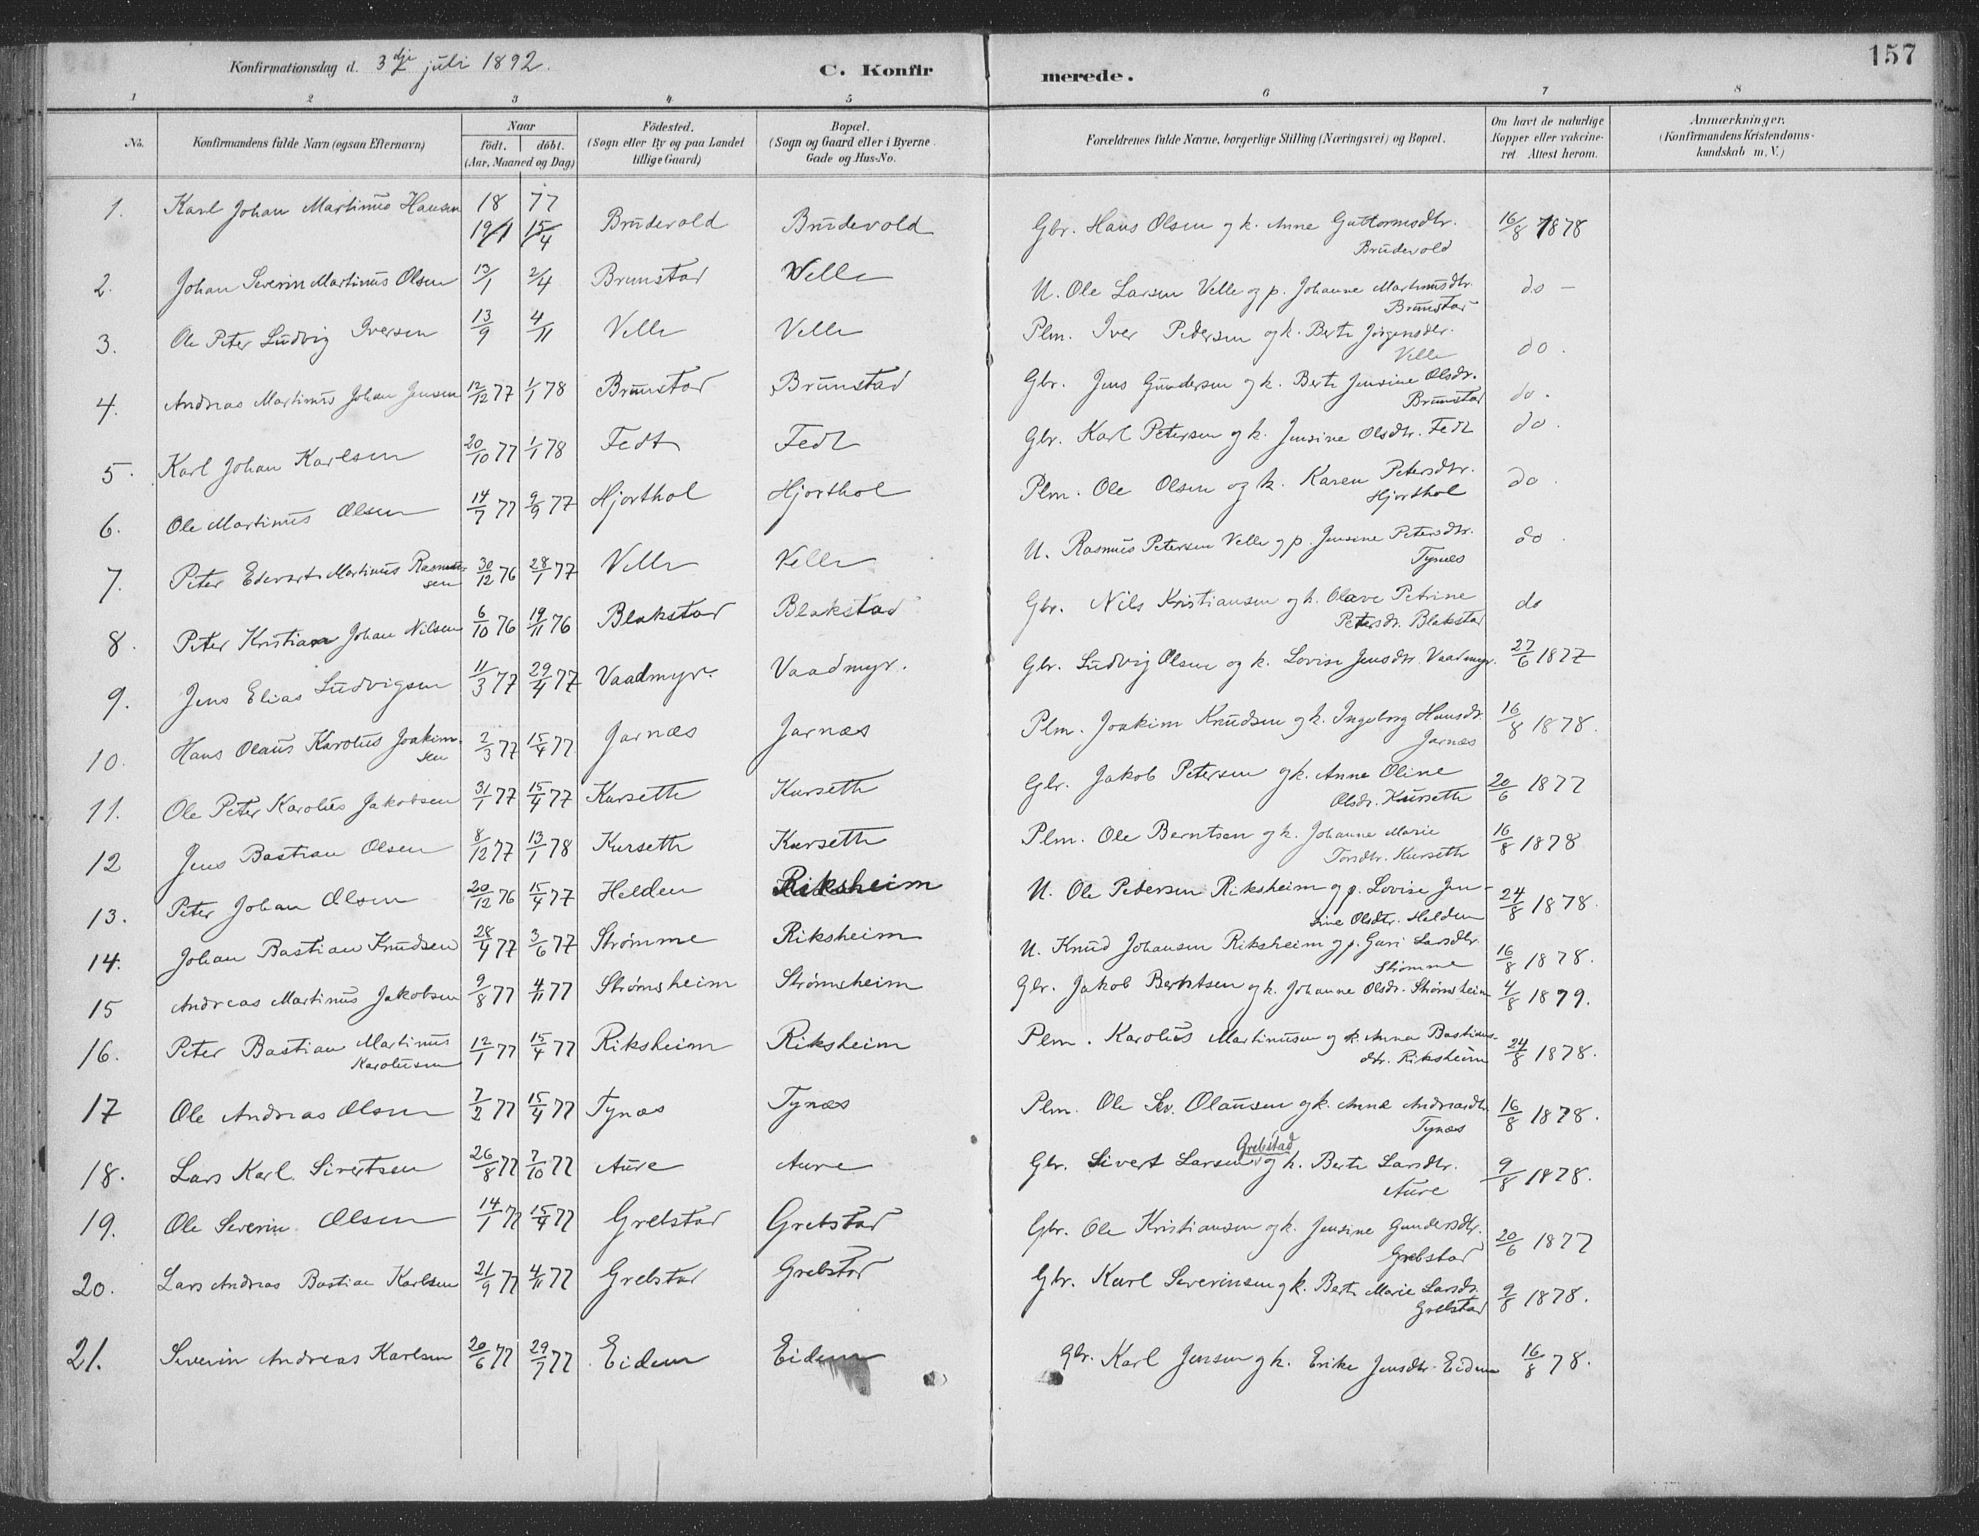 157
Konfirmationsdag d. 3dje juli 1892.
C. Konfir merede.
1 2 3 4 5 6 7 8
No. Konfirmandens fulde Navn (ogsaa Efternavn) Naar födt. döbt. (Aar, Maaned og Dag) Födested. (Sogn eller By og paa Landet tillige Gaard) Bopæl. (Sogn og Gaard eller i Byerne Gade og Hus-No. Forældrenes fulde Navne, borgerlige Stilling (Næringsvei) og Bopæl. Om havt de naturlige Kopper eller vakcineret Attest herom. Anmærkninger. (Konfirmandens Kristendomskundskab m. V.)
1. Karl Johan Martinus Hansen 18 77 19/1 15/4 Brudevold Brudevold Gbr. Hans Olsen og k. Anne Guttormsdtr. Brudevold 16/8 1878
2. Johan Severin Martinus Olsen 13/1 2/4 Brunstad Velle U. Ole Larsen Velle og p. Johanne Martinusdtr. Brunstad do –
3. Ole Peter Ludvig Iversen 13/9 4/11 Velle Velle Plm. Iver Pedersen og k. Berte Jørgensdtr. Velle do.
4. Andreas Martinus Johan Jensen 12/12 77 1/1 78 Brunstad Brunstad Gbr. Jens Gundersen og k. Berte Jensine Olsdr. Brunstad do.
5. Karl Johan Karlsen 20/10 77 1/1 78 Fedt Fedt Gbr. Karl Petersen og k. Jensine Olsdtr. Fedt do.
6. Ole Martinus Olsen 14/7 77 9/9 77 Hjorthol Hjorthol Plm. Ole Olsen og k. Karen Petersdtr. Hjorthol do
7. Peter Edevart Martinus Rasmussen 30/12 76 28/1 77 Velle Velle U. Rasmus Petersen Velle og p. Jensine Petersdtr. Tynæs do
8. Peter Kristian Johan Nilsen 6/10 76 19/11 76 Blakstad Blakstad Gbr. Nils Kristiansen og k. Olave Petrine Petersdr. Blakstad do
9. Jens Elias Ludvigsen 11/3 77 29/4 77 Vaadmyr. Vaadmyr. Gbr. Ludvig Olsen og k. Lovise Jensdtr. Vaadmyr. 27/6 1877
10. Hans Olaus Karolus Joakimsen 2/3 77 15/4 77 Jarnæs Jarnæs Plm. Joakim Knudsen og k. Ingeborg Hansdr. Jarnæs 16/8 1878.
11. Ole Peter Karolus Jakobsen 31/1 77 15/4 77 Kurseth Kurseth Gbr. Jakob Petersen og k. Anne Oline Olsdr. Kurseth 20/6 1877
12 Jens Bastian Olsen 8/12 77 13/1 78 Kurseth Kurseth Plm. Ole Berntsen og k. Johanne Marie Torsdtr. Kurseth 16/8 1878
13. Peter Johan Olsen 20/12 76 15/4 77 Helden Riksheim U. Ole Pedersen Riksheim og p. Lovise Jensine Olsdtr. Helden 24/8 1878.
14. Johan Bastian Knudsen 28/4 77 3/6 77 Strømme Riksheim U. Knud Johansen Riksheim og p. Guri Larsdtr. Strømme 16/8 1878.
15 Andreas Martinus Jakobsen 9/8 77 4/11 77 Strømsheim Strømsheim Gbr. Jakob Berntsen og k. Johanne Olsdr. Strømsheim 4/8 1879.
16. Peter Bastian Martinus Karolusen 12/1 77 15/4 77 Riksheim Riksheim Plm. Karolus Martinusen og k. Anna Bastiansdtr. Riksheim 24/8 1878.
17 Ole Andreas Olsen 7/2 77 15/4 77 Tynæs Tynæs Plm. Ole Sev. Olausen og k. Anne Andreasdtr. Tynæs 16/8 1878.
18. Lars Karl Sivertsen 26/8 77 7/10 77 Aure Aure Gbr. Sivert Larsen Grebstad og k. Berte Larsdtr. Aure 9/8 1878.
19. Ole Severin Olsen 14/1 77 15/4 77 Grebstad Grebstad Gbr. Ole Kristiansen og k. Jensine Gundersdtr. Grebstad 20/6 1877
20. Lars Andreas Bastian Karlsen 21/9 77 4/11 77 Grebstad Grebstad Gbr. Karl Severinsen og k. Berte Marie Larsdr. Grebstad 9/8 1878.
21. Severin Andreas Karlsen 20/6 77 29/7 77 Eidem Eidem Gbr. Karl Jensen og k. Erike Jensdtr. Eidem 16/8 78.